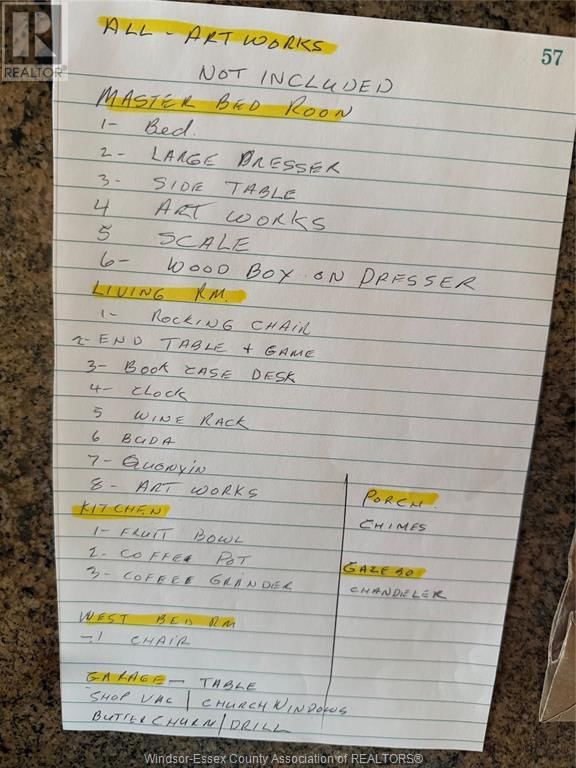 REALTOR®
57
ALL - ART WORKS
NOT INCLUDED
MASTER BED ROON
1- Bed.
2- LARGE DRESSER
3- SIDE TABLE
4 ART WORKS
5 SCALE
6- WOOD BOX ON DRESSER
LIVING RM.
1- ROCKING CHAIR
2- END TABLE + GAME
3- BOOK CASE DESK
4- CLOCK
5 WINE RACK
6 BUDA
7- QUANYIN
8- ART WORKS
KITCHEN
1- FRUIT BOWL
2- COFFEE POT
3- COFFEE GRANDER
WEST BED RM
-1 CHAIR
GARAGE - TABLE
SHOP VAC | CHURCH WINDOWS
BUTTER CHURN / DRILL
PORCH.
CHIMES
GAZEBO
CHANDELER
Windsor-Essex County Association of REALTORS®